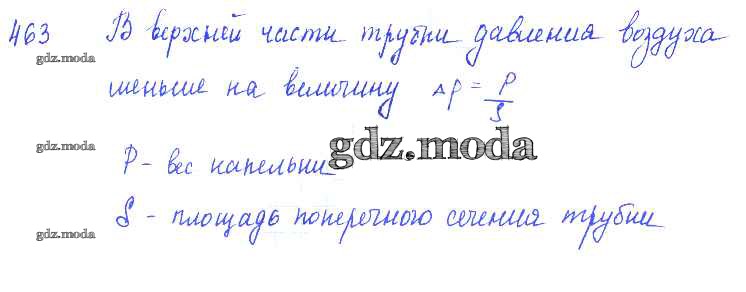 463 В верхней части трубки давления воздуха
gdz.moda
меньше на величину Δp = P/S
gdz.moda
P - вес капельки
gdz.moda
S - площадь поперечного сечения трубки
gdz.moda